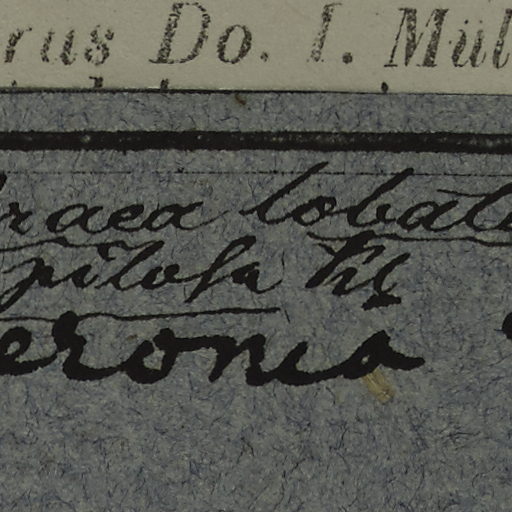 rus Do. I. Mül
raea lobata
pilosa
eronia